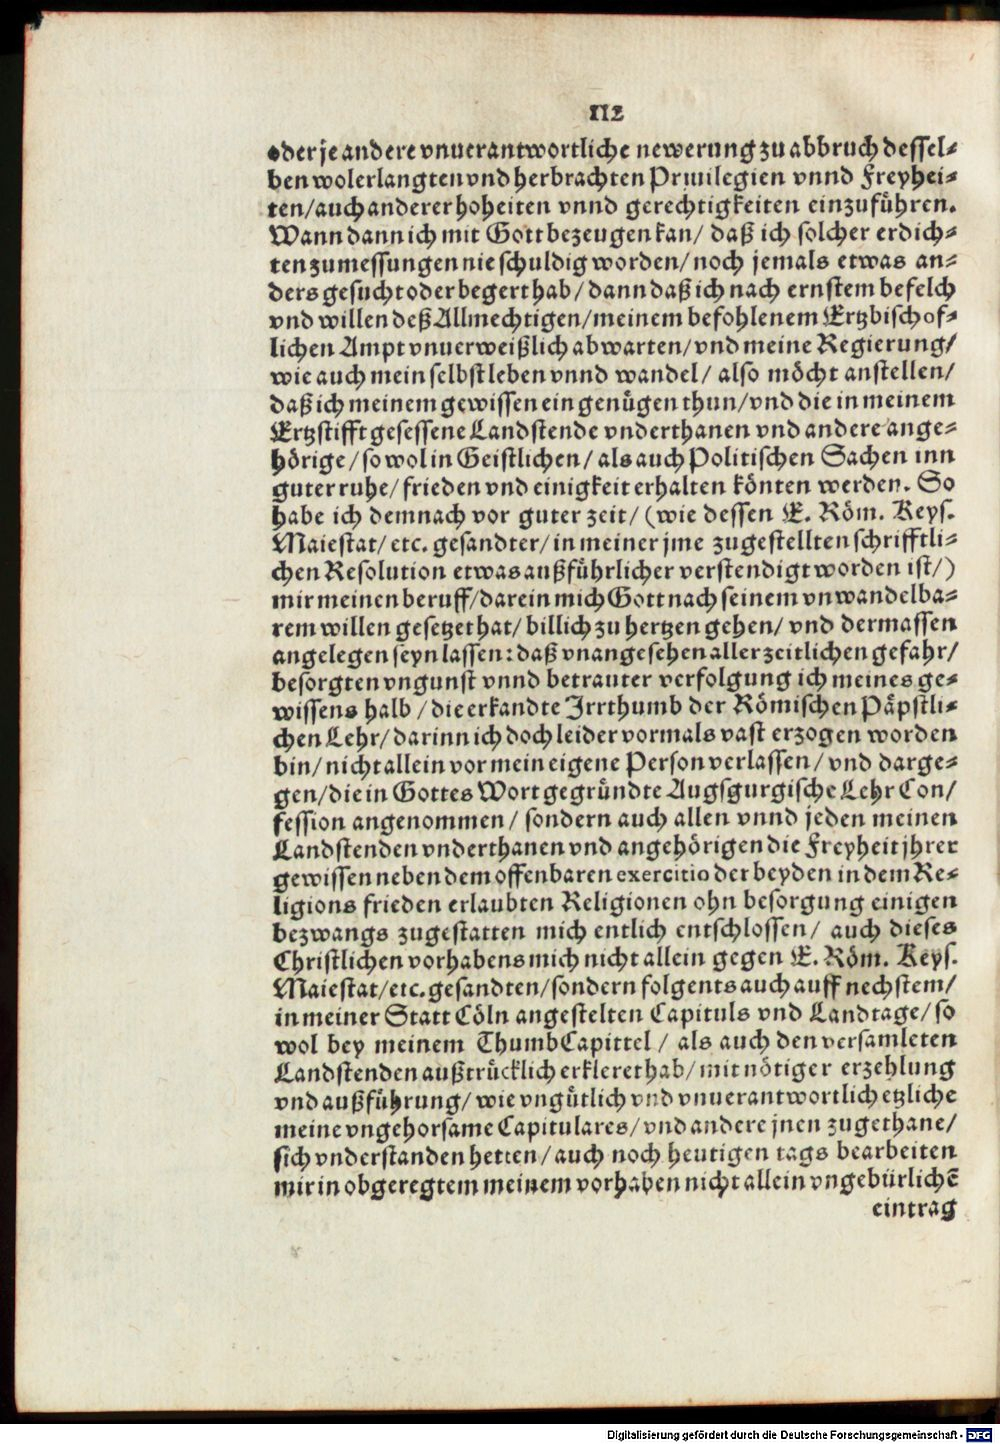 112
oder je andere vnuerantwortliche newerung zu abbruch dessel-
ben wolerlangten vnd herbrachten Priuilegien vnnd Freyhei-
ten/ auch anderer hoheiten vnnd gerechtigkeiten einzuführen.
Wann dann ich mit Gott bezeugen kan/ daß ich solcher erdich-
ten zumessungen nie schuldig worden/ noch jemals etwas an-
ders gesucht oder begert hab/ dann daß ich nach ernstem befelch
vnd willen deß Allmechtigen/ meinem befohlenem Ertzbischof-
lichen Ampt vnuerweißlich abwarten/ vnd meine Regierung/
wie auch mein selbst leben vnnd wandel/ also möcht anstellen/
daß ich meinem gewissen ein genügen thun/ vnd die in meinem
Ertzstifft gesessene Landstende vnderthanen vnd andere ange-
hörige/ so wol in Geistlichen/ als auch Politischen Sachen inn
guter ruhe/ frieden vnd einigkeit erhalten könten werden. So
habe ich demnach vor guter zeit/ (wie dessen E. Röm. Keys.
Maiestat/ etc. gesandter/ in meiner jme zugestellten schrifftli-
chen Resolution etwas außführlicher verstendigt worden ist/)
mir meinen beruff/ darein mich Gott nach seinem vnwandelba-
rem willen gesetzet hat/ billich zu hertzen gehen/ vnd dermassen
angelegen seyn lassen: daß vnangesehen aller zeitlichen gefahr/
besorgten vngunst vnnd betrauter verfolgung ich meines ge-
wissens halb/ die erkandte Jrrthumb der Römischen Päpstli-
chen Lehr/ darinn ich doch leider vormals vast erzogen worden
bin/ nicht allein vor mein eigene Person verlassen/ vnd darge-
gen/ die in Gottes Wort gegründte Augsgurgische Lehr Con/
fession angenommen/ sondern auch allen vnnd jeden meinen
Landstenden vnderthanen vnd angehörigen die Freyheit jhrer
gewissen neben dem offenbaren exercitio der beyden in dem Re-
ligions frieden erlaubten Religionen ohn besorgung einigen
bezwangs zugestatten mich entlich entschlossen/ auch dieses
Christlichen vorhabens mich nicht allein gegen E. Röm. Keys.
Maiestat/ etc. gesandten/ sondern folgents auch auff nechstem/
in meiner Statt Cöln angestelten Capituls vnd Landtage/ so
wol bey meinem ThumbCapittel/ als auch den versamleten
Landstenden außtrücklich erkleret hab/ mit nötiger erzehlung
vnd außführung/ wie vngütlich vnd vnuerantwortlich etzliche
meine vngehorsame Capitulares/ vnd andere jnen zugethane/
sich vnderstanden hetten/ auch noch heutigen tags bearbeiten
mir in obgeregtem meinem vorhaben nicht allein vngebürlichē
eintrag
Digitalisierung gefördert durch die Deutsche Forschungsgemeinschaft - DFG